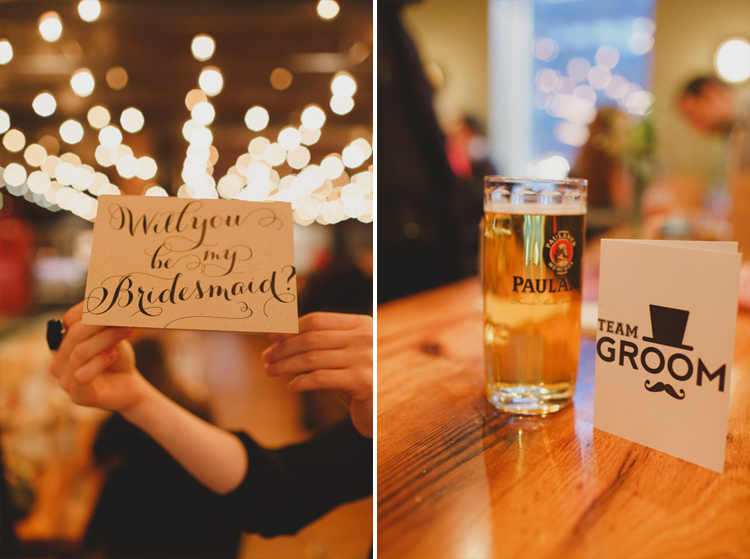 Will you
be my
Bridesmaid?
PAULA
TEAM
GROOM